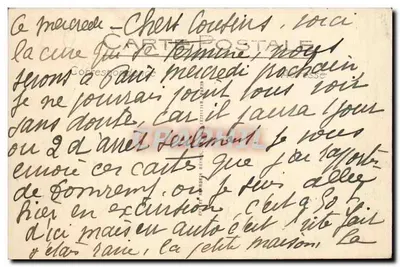 Ce mercredi - Chers Cousins, voici
CARTE POSTALE
la cure qui se termine, nous
serons à Paris mercredi prochain
je ne pourrais point vous voir
sans doute, car il y aura 1 jour
ou 2 d'arrêt seulement. Je vous
envoie ces cartes que j'ai rapportées
de Domremy, où je suis allée
hier en excursion, c'est à 50 K
d'ici mais en auto c'est vite fait
la petite maison. La